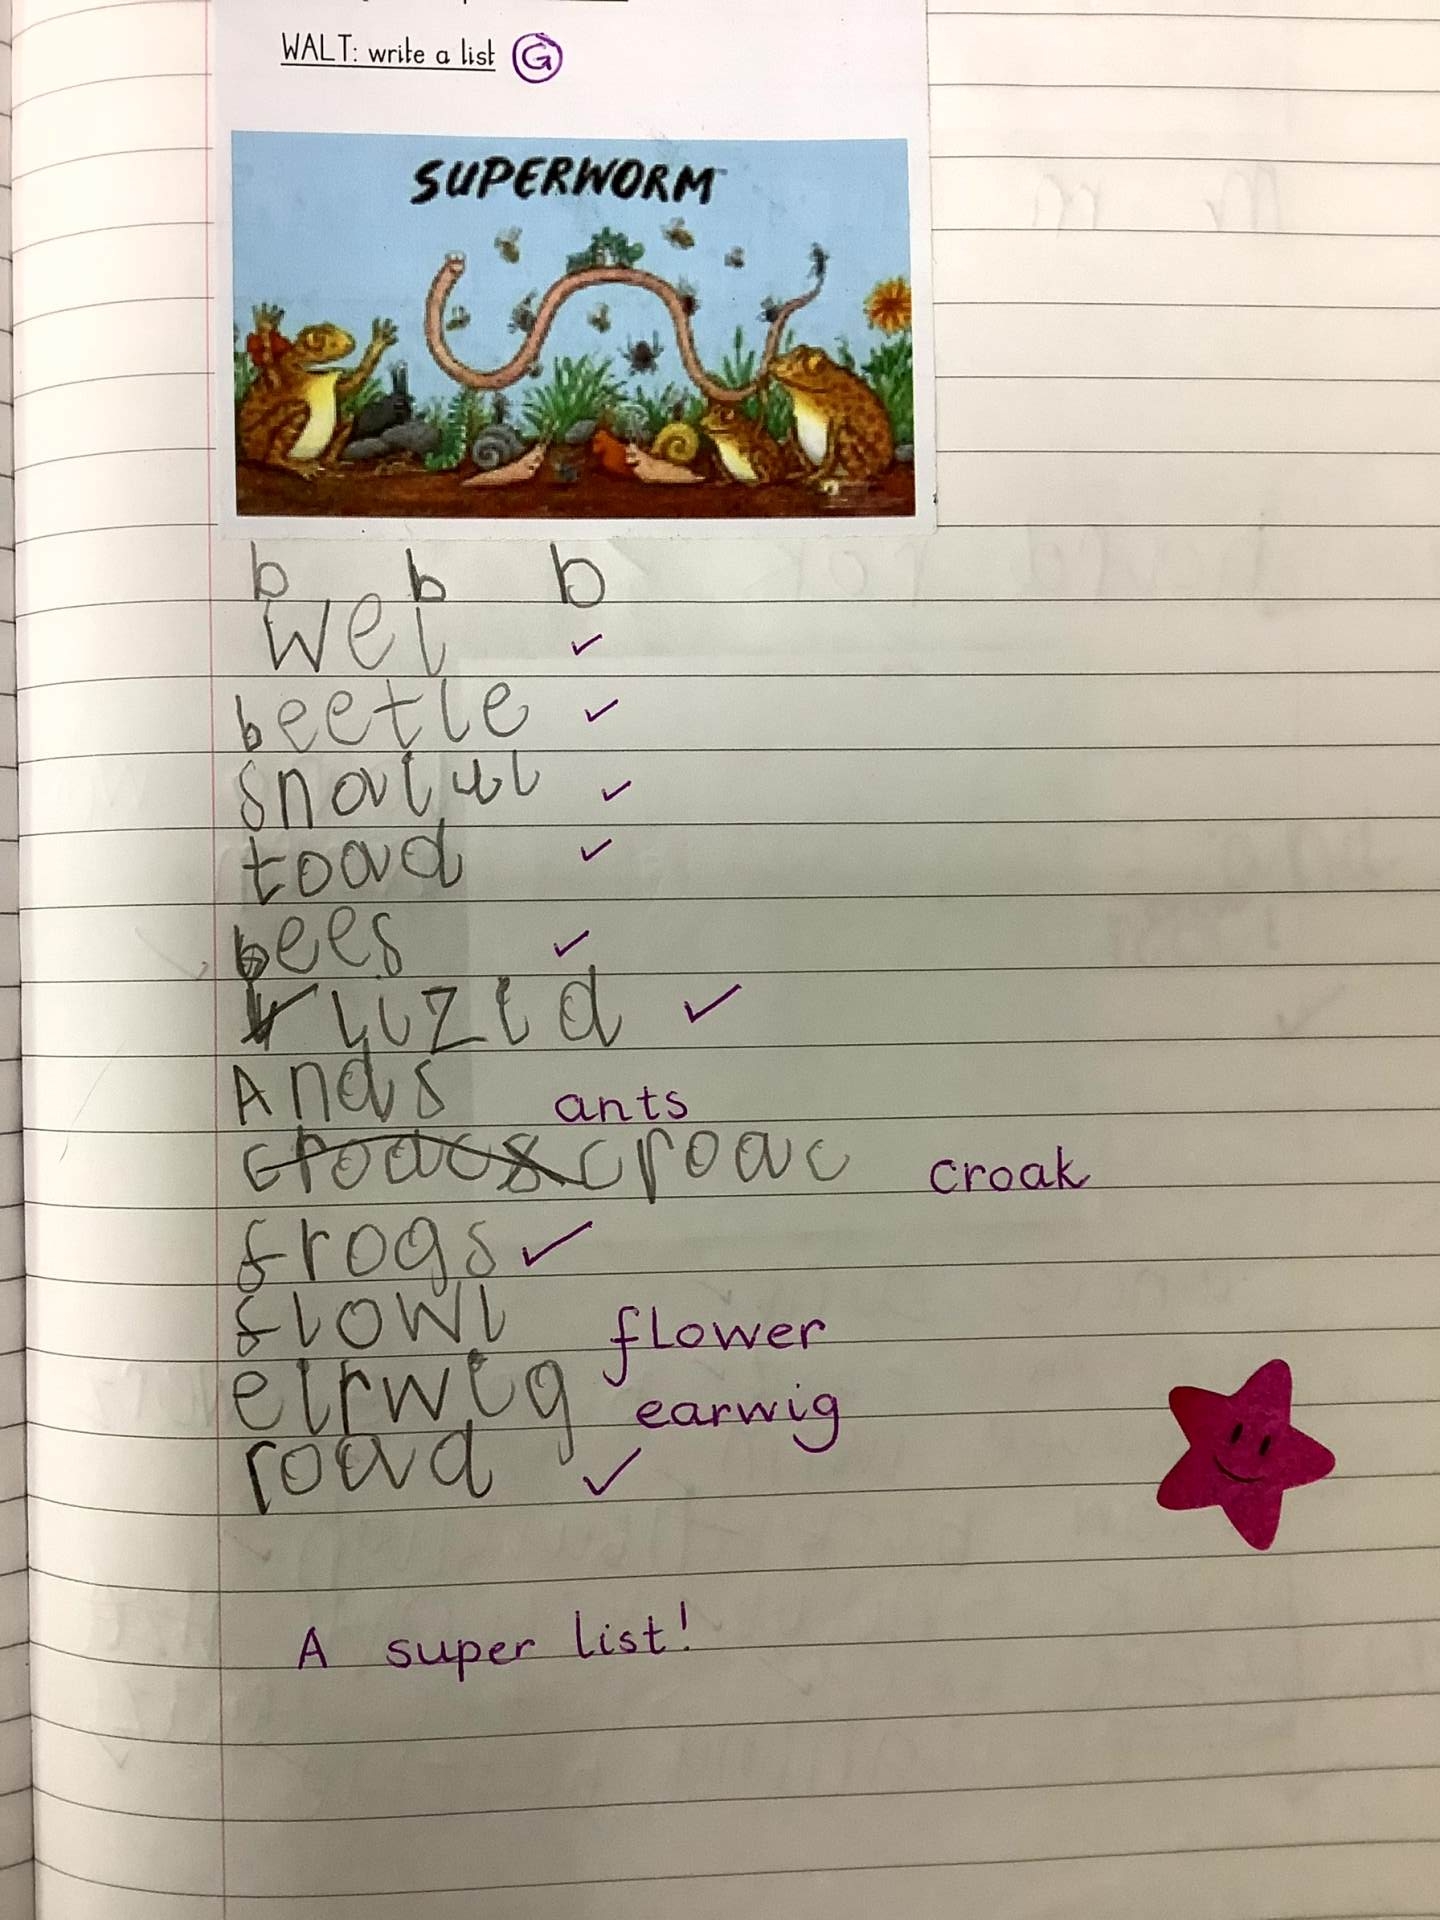 WALT: write a list G
SUPERWORM
b b b
wel
beetle
toad
bees
Ands ants
croacs croac croak
frogs
flowl flower
eirwig earwig
road
A super list!